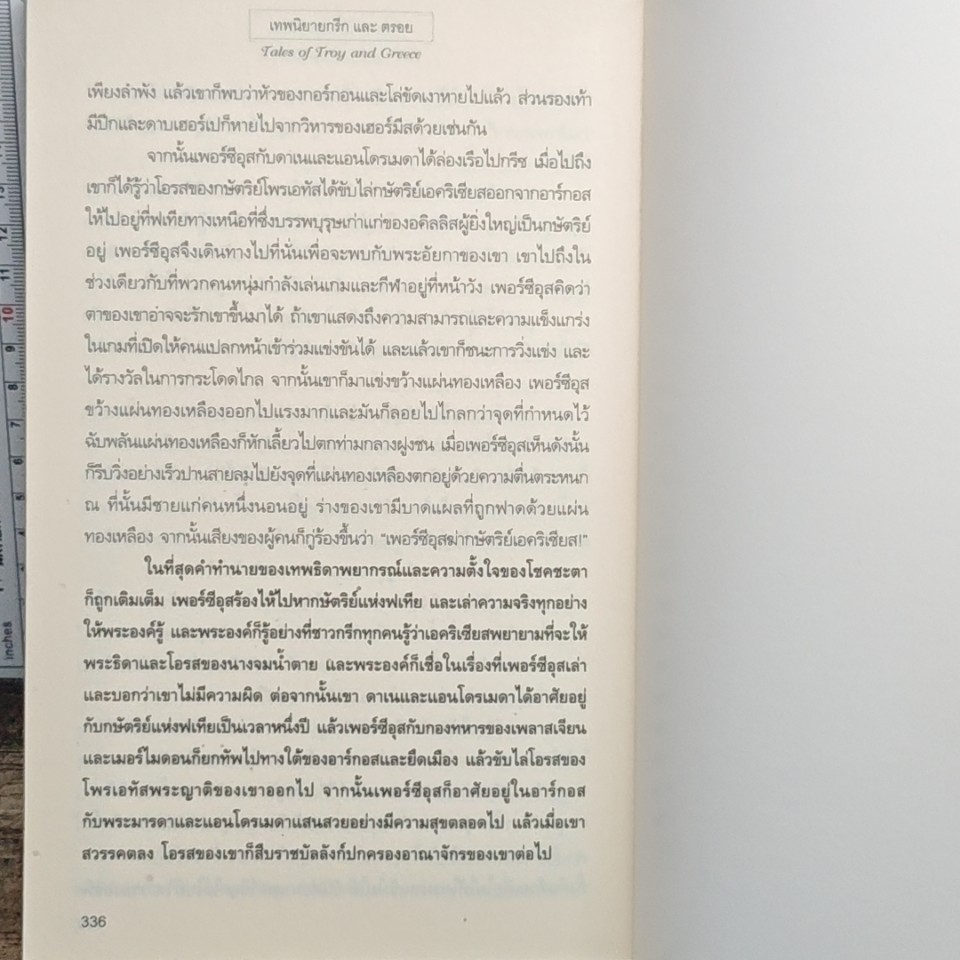 เทพนิยายกรีก และ ตรอย
Tales of Troy and Greece
เพียงลำพัง แล้วเขาก็พบว่าหัวของกอร์กอนและโล่ขัดเงาหายไปแล้ว ส่วนรองเท้า
มีปีกและดาบเฮอร์เปก็หายไปจากวิหารของเฮอร์มีสด้วยเช่นกัน
จากนั้นเพอร์ซีอุสกับดาเนและแอนโดรเมดาได้ล่องเรือไปกรีซ เมื่อไปถึง
เขาก็ได้รู้ว่าโอรสของกษัตริย์โพรเอทัสได้ขับไล่กษัตริย์เอคริเซียสออกจากอาร์กอส
ให้ไปอยู่ที่ฟเทียทางเหนือที่ซึ่งบรรพบุรุษเก่าแก่ของอคิลลิสผู้ยิ่งใหญ่เป็นกษัตริย์
อยู่ เพอร์ซีอุสจึงเดินทางไปที่นั่นเพื่อจะพบกับพระอัยกาของเขา เขาไปถึงใน
ช่วงเดียวกับที่พวกคนหนุ่มกำลังเล่นเกมและกีฬาอยู่ที่หน้าวัง เพอร์ซีอุสคิดว่า
ตาของเขาอ่าจจะรักเขาขึ้นมาได้ ถ้าเขาแสดงถึงความสามารถและความแข็งแกร่ง
ในเกมที่เปิดให้คนแปลกหน้าเข้าร่วมแข่งขันได้ และแล้วเขาก็ชนะการวิ่งแข่ง และ
ได้รางวัลในการกระโดดไกล จากนั้นเขาก็มาแข่งขว้างแผ่นทองเหลือง เพอร์ซีอุส
ขว้างแผ่นทองเหลืองออกไปแรงมากและมันก็ลอยไปไกลกว่าจุดที่กำหนดไว้
ฉับพลันแผ่นทองเหลืองก็หักเลี้ยวไปตกท่ามกลางฝูงชน เมื่อเพอร์ซีอุสเห็นดังนั้น
ก็รีบวิ่งอย่างเร็วปานสายลมไปยังจุดที่แผ่นทองเหลืองตกอยู่ด้วยความตื่นตระหนก
ณ ที่นั้นมีชายแก่คนหนึ่งนอนอยู่ ร่างของเขามีบาดแผลที่ถูกฟาดด้วยแผ่น
ทองเหลือง จากนั้นเสียงของผู้คนก็กู่ร้องขึ้นว่า "เพอร์ซีอุสฆ่ากษัตริย์เอคริเซียส!"
ในที่สุดคำทำนายของเทพธิดาพยากรณ์และความตั้งใจของโชคชะตา
ก็ถูกเติมเต็ม เพอร์ซีอุสร้องไห้ไปหากษัตริย์แห่งฟเทีย และเล่าความจริงทุกอย่าง
ให้พระองค์รู้ และพระองค์ก็รู้อย่างที่ชาวกรีกทุกคนรู้ว่าเอคริเซียสพยายามที่จะให้
พระธิดาและโอรสของนางจมน้ำตาย และพระองค์ก็เชื่อในเรื่องที่เพอร์ซีอุสเล่า
และบอกว่าเขาไม่มีความผิด ต่อจากนั้นเขา ดาเนและแอนโดรเมดาได้อาศัยอยู่
กับกษัตริย์แห่งฟเทียเป็นเวลาหนึ่งปี แล้วเพอร์ซีอุสกับกองทหารของเพลาสเจียน
และเมอร์ไมดอนก็ยกทัพไปทางใต้ของอาร์กอสและยึดเมือง แล้วขับไล่โอรสของ
โพรเอทัสพระญาติของเขาออกไป จากนั้นเพอร์ซีอุสก็อาศัยอยู่ในอาร์กอส
กับพระมารดาและแอนโดรเมดาแสนสวยอย่างมีความสุขตลอดไป แล้วเมื่อเขา
สวรรคตลง โอรสของเขาก็สืบราชบัลลังก์ปกครองอาณาจักรของเขาต่อไป
336
13
12
11
10
9
8
7
6
5
inches